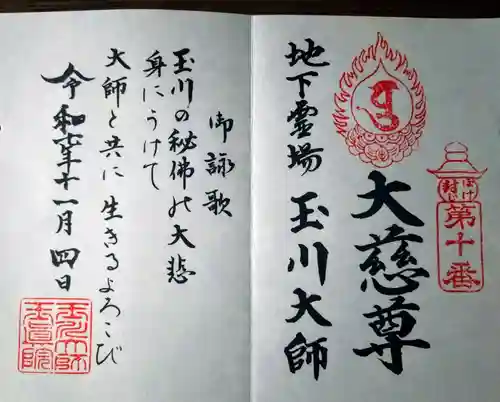 第十番
ぼけ封じ
大慈尊
地下霊場 玉川大師
御詠歌
玉川の秘佛の大悲
身にうけて
大師と共に 生きるよろこび
令和六年十一月四日
玉川大師
玉眞院